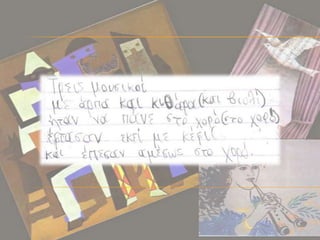 Τρεις μουσικοί
με άρπα και κιθάρα (και βιολί)
ήταν να πάνε στο χορό (στο χορό)
έφτασαν εκεί με κέφι
και έπεσαν αμέσως στο χορό.